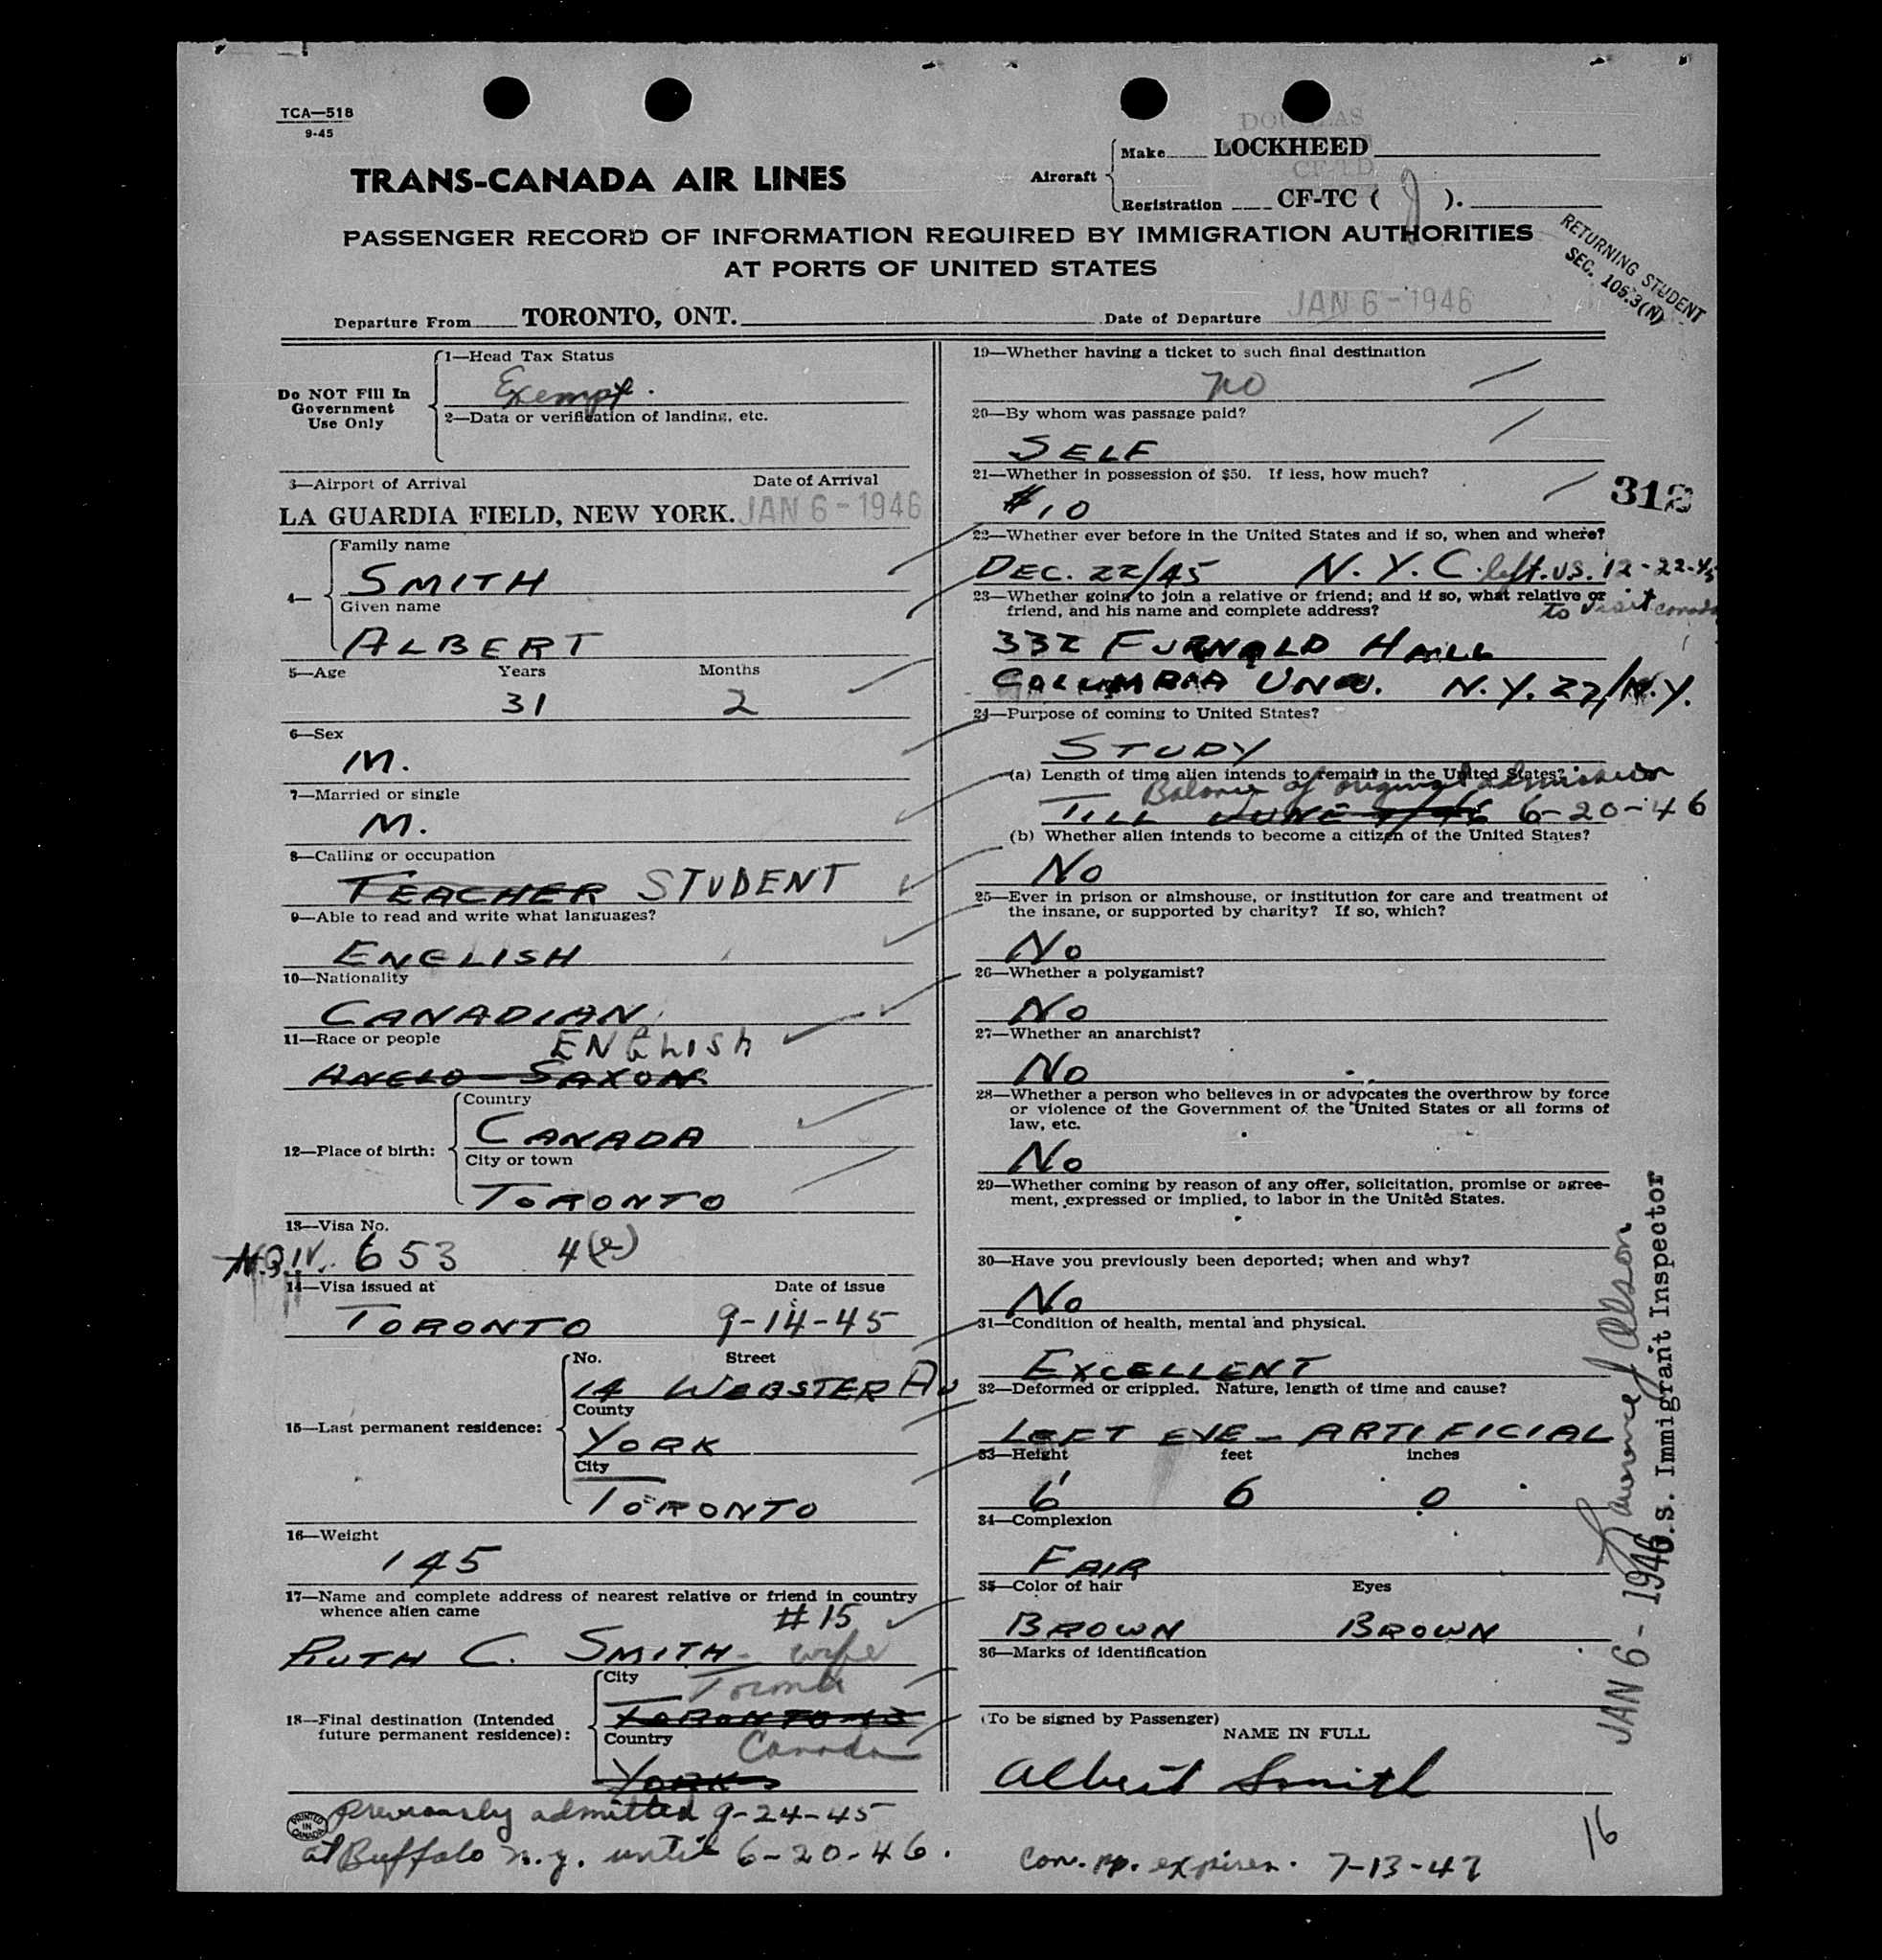 TCA—518
9-45
DOUGLAS
Make LOCKHEED
TRANS-CANADA AIR LINES
Aircraft
CF-TD
Registration CF-TC ( J ).
PASSENGER RECORD OF INFORMATION REQUIRED BY IMMIGRATION AUTHORITIES
AT PORTS OF UNITED STATES
RETURNING STUDENT
SEC. 105.3(N)
Departure From TORONTO, ONT.
Date of Departure JAN 6 - 1946
Do NOT Fill In
Government
Use Only
1—Head Tax Status
Exempt.
2—Data or verification of landing, etc.
3—Airport of Arrival Date of Arrival
LA GUARDIA FIELD, NEW YORK. JAN 6 - 1946
4—
Family name
SMITH
Given name
ALBERT
5—Age Years Months
31 2
6—Sex
M.
7—Married or single
M.
8—Calling or occupation
TEACHER STUDENT
9—Able to read and write what languages?
ENGLISH
10—Nationality
CANADIAN
11—Race or people
ENGLISH
ANGLO-SAXON
12—Place of birth:
Country
CANADA
City or town
TORONTO
13—Visa No.
653 4(e)
14—Visa issued at Date of issue
TORONTO 9-14-45
15—Last permanent residence:
No. Street
14 WEBSTER AV
County
YORK
City
TORONTO
16—Weight
145
17—Name and complete address of nearest relative or friend in country
whence alien came
#15
RUTH C. SMITH - wife
18—Final destination (Intended
future permanent residence):
City
Toronto
TORONTO
Country
Canada
YORK
PRINTED IN CANADA
previously admitted 9-24-45
at Buffalo N.Y. until 6-20-46.
19—Whether having a ticket to such final destination
no
20—By whom was passage paid?
SELF
21—Whether in possession of $50. If less, how much?
$10
318
22—Whether ever before in the United States and if so, when and where?
DEC. 22/45 N.Y.C. left U.S. 12-22-45
23—Whether going to join a relative or friend; and if so, what relative or
friend, and his name and complete address?
to visit Canada
332 FURNALD HALL
COLUMBIA UNIV. N.Y. 27/N.Y.
24—Purpose of coming to United States?
STUDY
(a) Length of time alien intends to remain in the United States?
Balance of original admission
TILL JUNE 6-20-46
(b) Whether alien intends to become a citizen of the United States?
NO
25—Ever in prison or almshouse, or institution for care and treatment of
the insane, or supported by charity? If so, which?
NO
26—Whether a polygamist?
NO
27—Whether an anarchist?
NO
28—Whether a person who believes in or advocates the overthrow by force
or violence of the Government of the United States or all forms of
law, etc.
NO
29—Whether coming by reason of any offer, solicitation, promise or agree-
ment, expressed or implied, to labor in the United States.
30—Have you previously been deported; when and why?
NO
31—Condition of health, mental and physical.
EXCELLENT
32—Deformed or crippled. Nature, length of time and cause?
LEFT EYE - ARTIFICIAL
33—Height feet inches
6' 6 0
34—Complexion
FAIR
35—Color of hair Eyes
BROWN BROWN
36—Marks of identification
(To be signed by Passenger)
NAME IN FULL
Albert Smith
16
Can. pp. expires. 7-13-47
U.S. Immigrant Inspector
JAN 6 - 1946